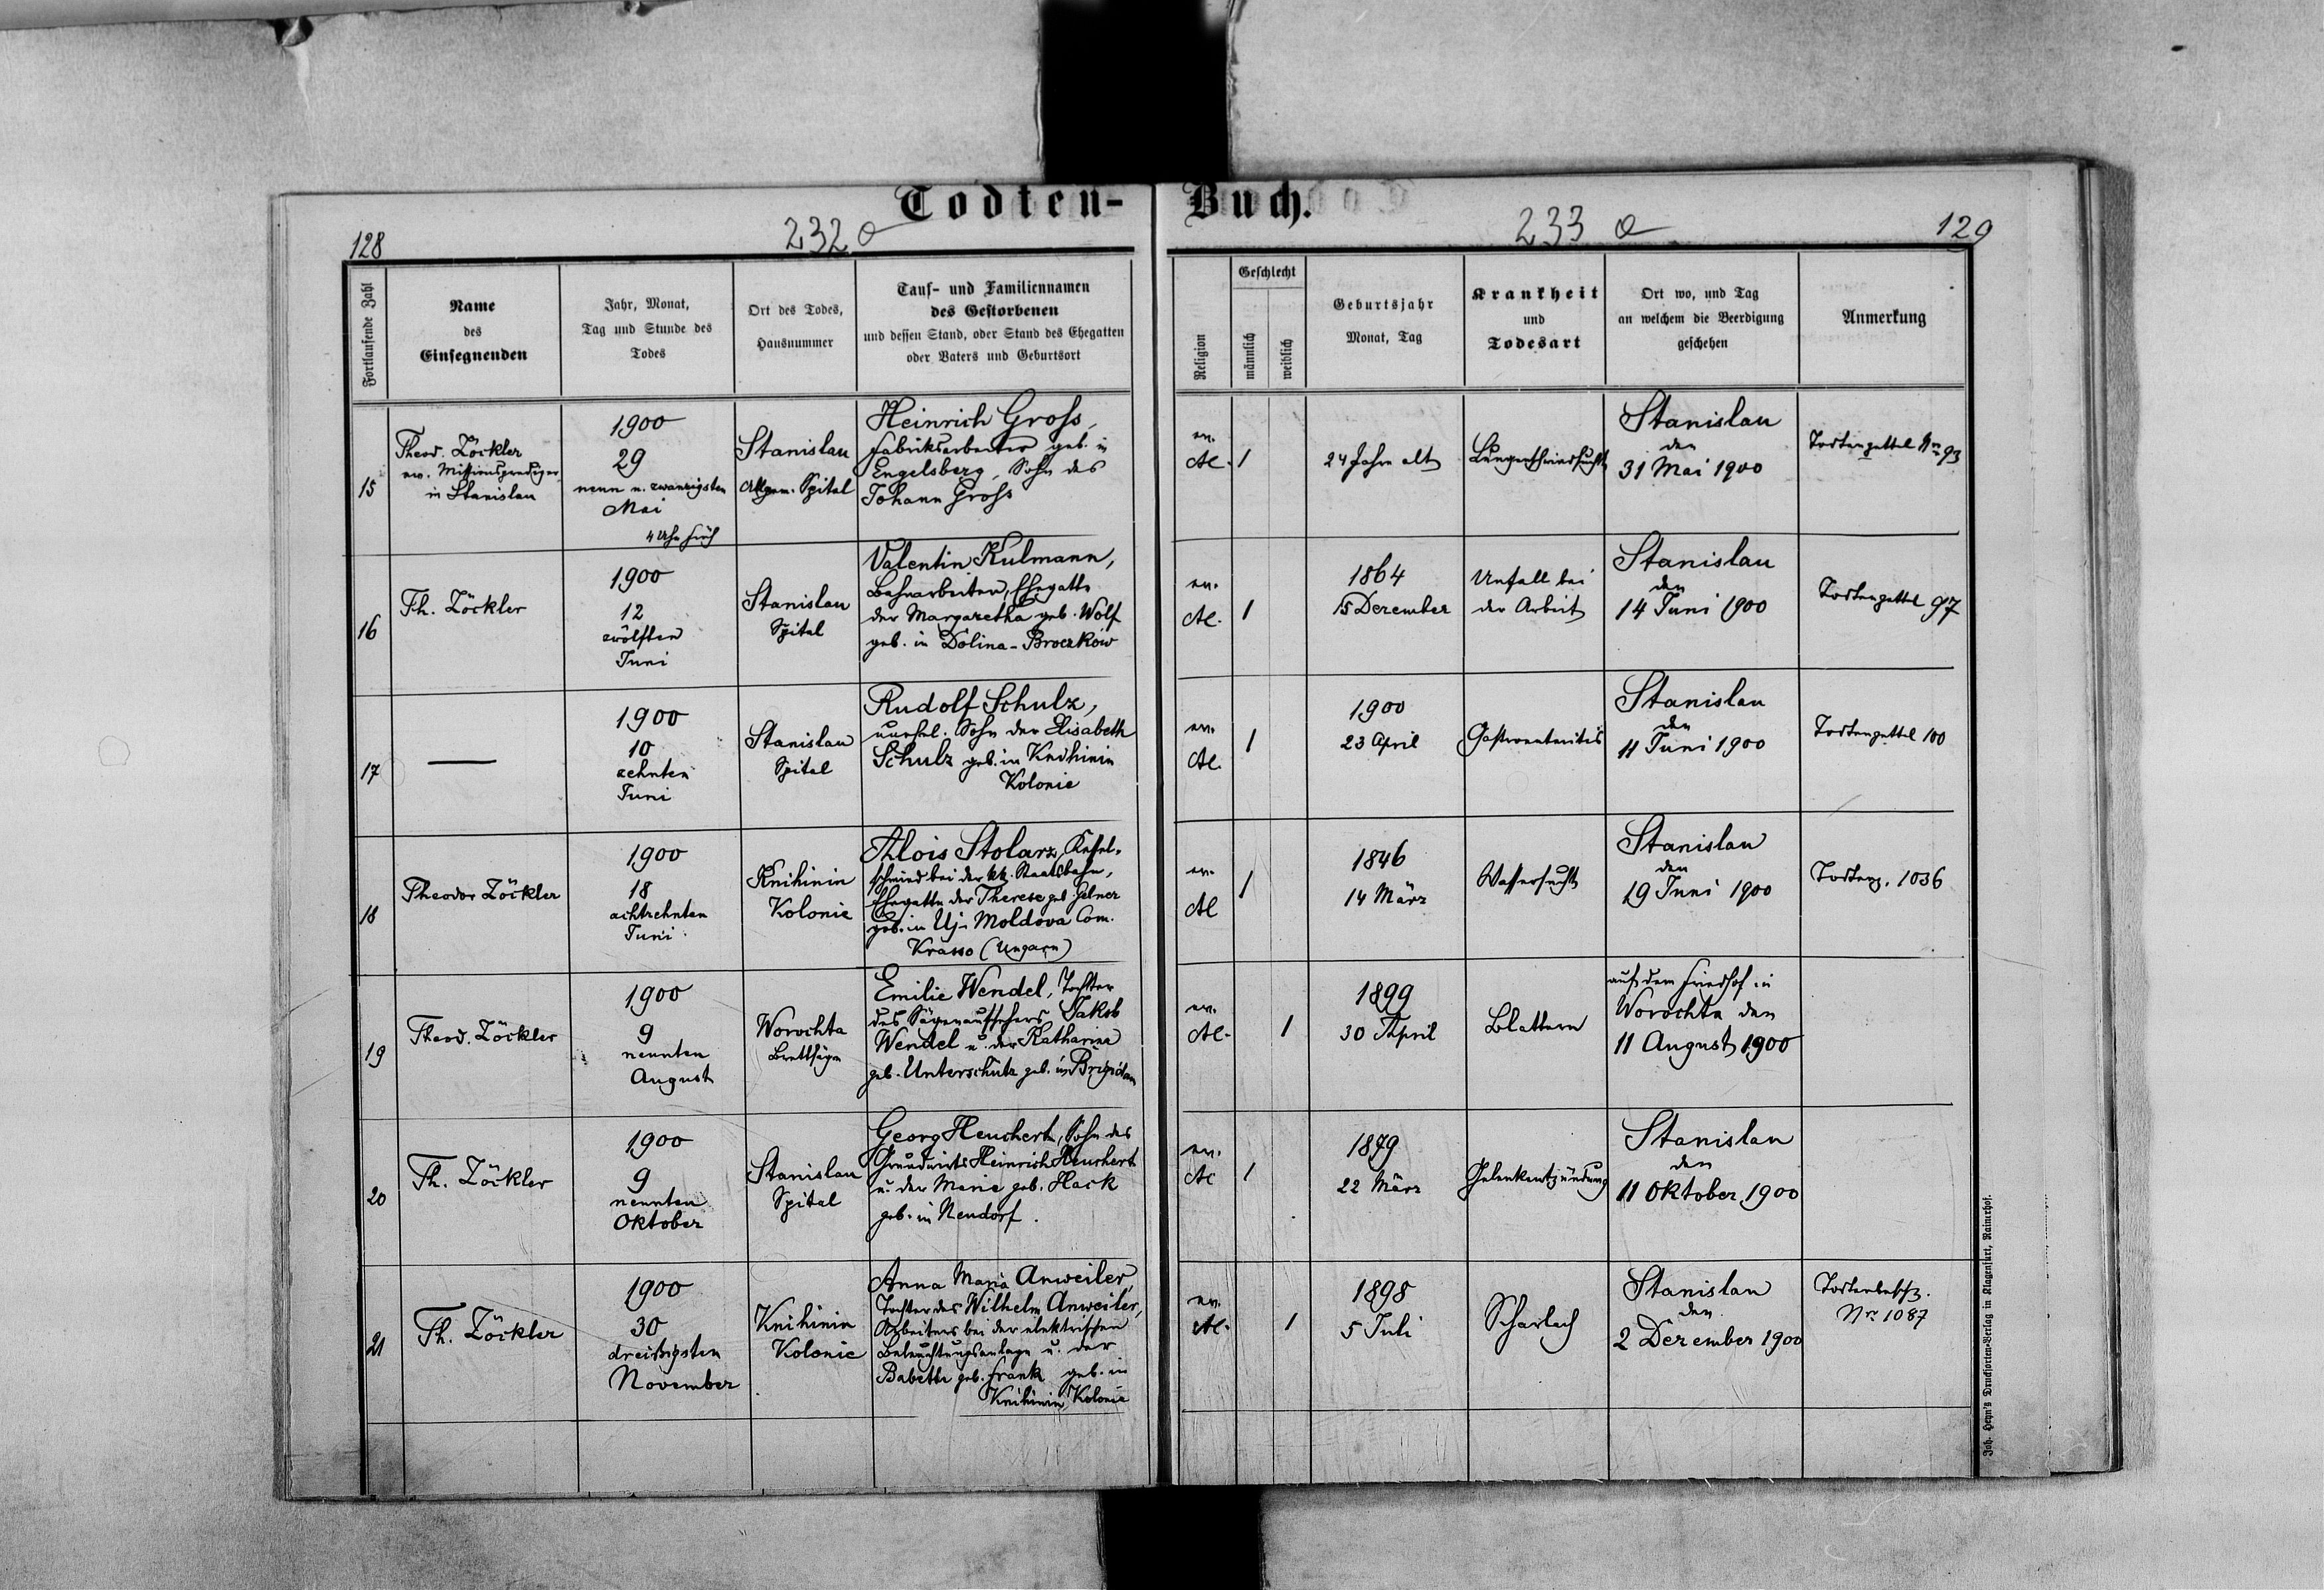 Todten-Buch.
128
232 a
233 a
129
Fortlaufende Zahl
Name
des
Einsegnenden
Jahr, Monat,
Tag und Stunde des
Todes
Ort des Todes,
Hausnummer
Tauf- und Familiennamen
des Gestorbenen
und dessen Stand, oder Stand des Ehegatten
oder Vaters und Geburtsort
Religion
Geschlecht
männlich
weiblich
Geburtsjahr
Monat, Tag
Krankheit
und
Todesart
Ort wo, und Tag
an welchem die Beerdigung
geschehen
Anmerkung
15
Theod. Zöckler
ev. Missionsprediger
in Stanislau
1900
29
neun u. zwanzigsten
Mai
4 Uhr früh
Stanislau
Allgem. Spital
Heinrich Gross,
Fabriksarbeiter geb. in
Engelsberg, Sohn des
Johann Gross
ev.
1
24 Jahre alt
Lungenschwindsucht
Stanislau
den
31 Mai 1900
Todtenzettel Nro 93
16
Th. Zöckler
1900
12
zwölften
Juni
Stanislau
Spital
Valentin Kulmann,
Bahnarbeiter, Ehegatte
der Margaretha geb. Wolf
geb. in Dolina-Broczków
ev.
1
1864
15 Dezember
Unfall bei
der Arbeit
Stanislau
den
14 Juni 1900
Todtenzettel 97
17
1900
10
zehnten
Juni
Stanislau
Spital
Rudolf Schulz,
unehel. Sohn der Elisabeth
Schulz geb. in Knihinin
Kolonie
ev.
1
1900
23 April
Gastroenteritis
Stanislau
den
11 Juni 1900
Todtenzettel 100
18
Theodor Zöckler
1900
18
achtzehnten
Juni
Knihinin
Kolonie
Alois Stolarz, Kessel-
schmied bei der kk. Staatsbahn,
Ehegatte der Therese geb. Gelner
geb. in Uj-Moldova Com.
Krasso (Ungarn)
ev.
1
1846
14 März
Wassersucht
Stanislau
den
19 Juni 1900
Todtenz. 1036
19
Theod. Zöckler
1900
9
neunten
August
Worochta
Brettsäge
Emilie Wendel, Tochter
des Sägenaufsehers Jakob
Wendel u. der Katharina
geb. Unterschütz geb. in
ev.
1
1899
30 April
Blattern
auf dem Friedhof in
Worochta den
11 August 1900
20
Th. Zöckler
1900
9
neunten
Oktober
Stanislau
Spital
Georg Heuchert, Sohn des
Grundwirts Heinrich Heuchert
u. der Marie geb. Hack
geb. in Neudorf.
ev.
1
22 März
Gelenkentzündung
Stanislau
den
11 Oktober 1900
21
Th. Zöckler
1900
30
dreißigsten
November
Knihinin
Kolonie
Anna Maria Anweiler,
Tochter des Wilhelm Anweiler,
Arbeiters bei der elektrischen
Beleuchtungsanlage u. der
Babette geb. Frank geb. in
Knihinin Kolonie
ev.
1
1898
5 Juli
Scharlach
Stanislau
den
2 Dezember 1900
Nro 1087
Joh. Heyn's Drucksorten-Verlag in Klagenfurt, Rainerhof.